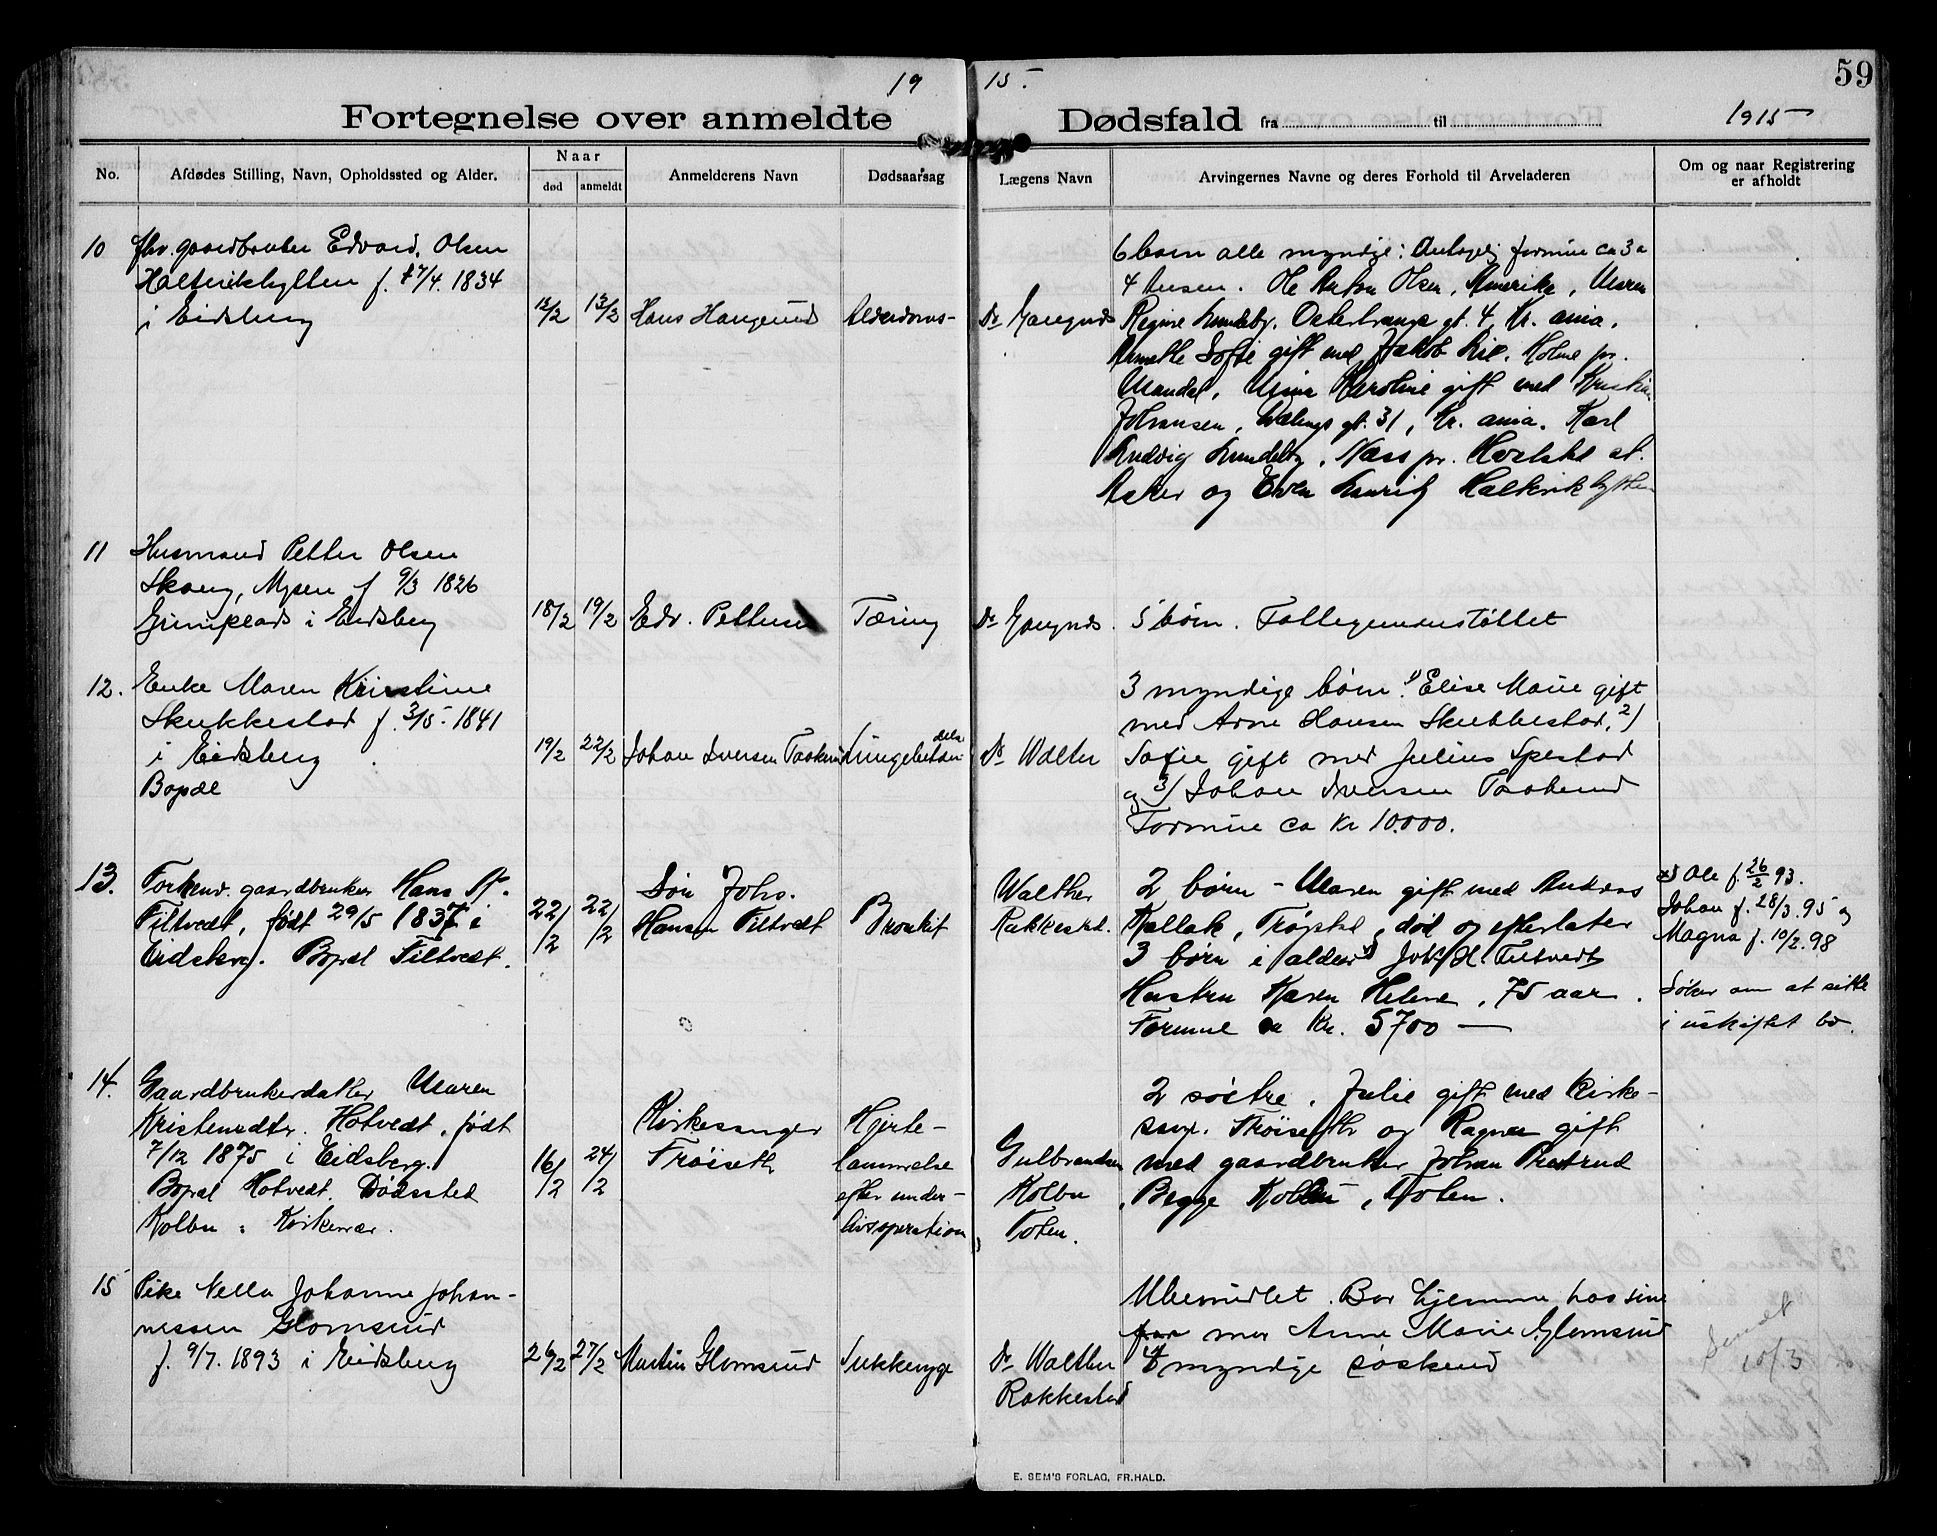 19 15.
59
Fortegnelse over anmeldte Dødsfald fra til 1915
No.
Afdødes Stilling, Navn, Opholdssted og Alder.
Naar
død
anmeldt
Anmelderens Navn
Dødsaarsag
Lægens Navn
Arvingernes Navne og deres Forhold til Arveladeren
Om og naar Registrering
er afholdt
10
fhv. gaardbruker Edvard Olsen
f. 17/4. 1834
i Eidsberg
12/2
13/2
Hans Haugerud
Alderdoms-
Dr
6 børn alle myndige: Antagelig formue ca 3 a
4 tusen. Ole Anton Olsen, Amerika, Maren
Regine Lundeby, gt. 4 Kr. ania.
Annette Sofie gift med Jakob Lie, Holme pr.
Mandal, Mina Karoline gift med Kristian
Johansen, gt. 31, Kr. ania. Karl
Ludvig Lundeby, Næss pr. st.
Asker og Even Laurits
11
Husmand Petter Olsen
Skaug, Mysen f 9/3 1826
i Eidsberg
18/2
19/2
Edv. Pettersen
Tæring
Dr
5 børn. Fattigunderstøttet
12.
Enke Maren Kristine
Skukkestad f. 3/5-1841
i Eidsberg
Bopæl
19/2
22/2
Johan Iversen Taakerud
Lungebetæn-
delse
Dr Walter
3 myndige børn: 1) Elise Marie gift
med Arne Hansen Skukkestad, 2)
Sofie gift med Julius Spestad
og 3) Johan Iversen Taakerud
Formue ca Kr 10.000.
13.
Forhenv. gaardbruker Hans
Tiltvedt, født 29/5 1837 i
Eidsberg. Bopæl Tiltvedt.
22/2
22/2
Søn Johs.
Hansen Tiltvedt
Bronkit
Walther
Rakkestd.
2 børn - Maren gift med Anders
Kallak, Trøgstad, død og efterlater
3 børn i alder x) Johs H. Tiltvedt
Hustru Karen Helene, 75 aar.
Formue ca Kr. 5700 —
x) Ole f. 26/2 93.
Johan f. 28/3. 95 og
Magna f. 10/2. 98
Søker om at sitte
i uskiftet bo.
14.
Gaardbrukerdatter Maren
Kristensdtr. Hotvedt, født
7/12 1875 i Eidsberg.
Bopæl Hotvedt. Dødssted
Kolbu i Kirkenær.
16/2
24/2
Kirkesanger
Trøiseth
Hjerte-
lammelse
efter under-
livsoperation
Gulbrandsen
Kolbu
Toten.
2 søstre. Julie gift med Kirke-
sang. Trøiseth og Ragna gift
med gaardbruker Johan
Begge Kolbu, Toten.
15
Pike Nella Johanne Johan-
nessen Glomsrud
f. 9/7. 1893 i Eidsberg
26/2
27/2
Martin Glomsrud
Sukkersyge
Dr Walther
Rakkestad
Ubemidlet. Bor hjemme hos sine
mor Anne Marie Glomsrud
4 myndige søskend
Sendt
10/3
E. SEM'S FORLAG, FR.HALD.